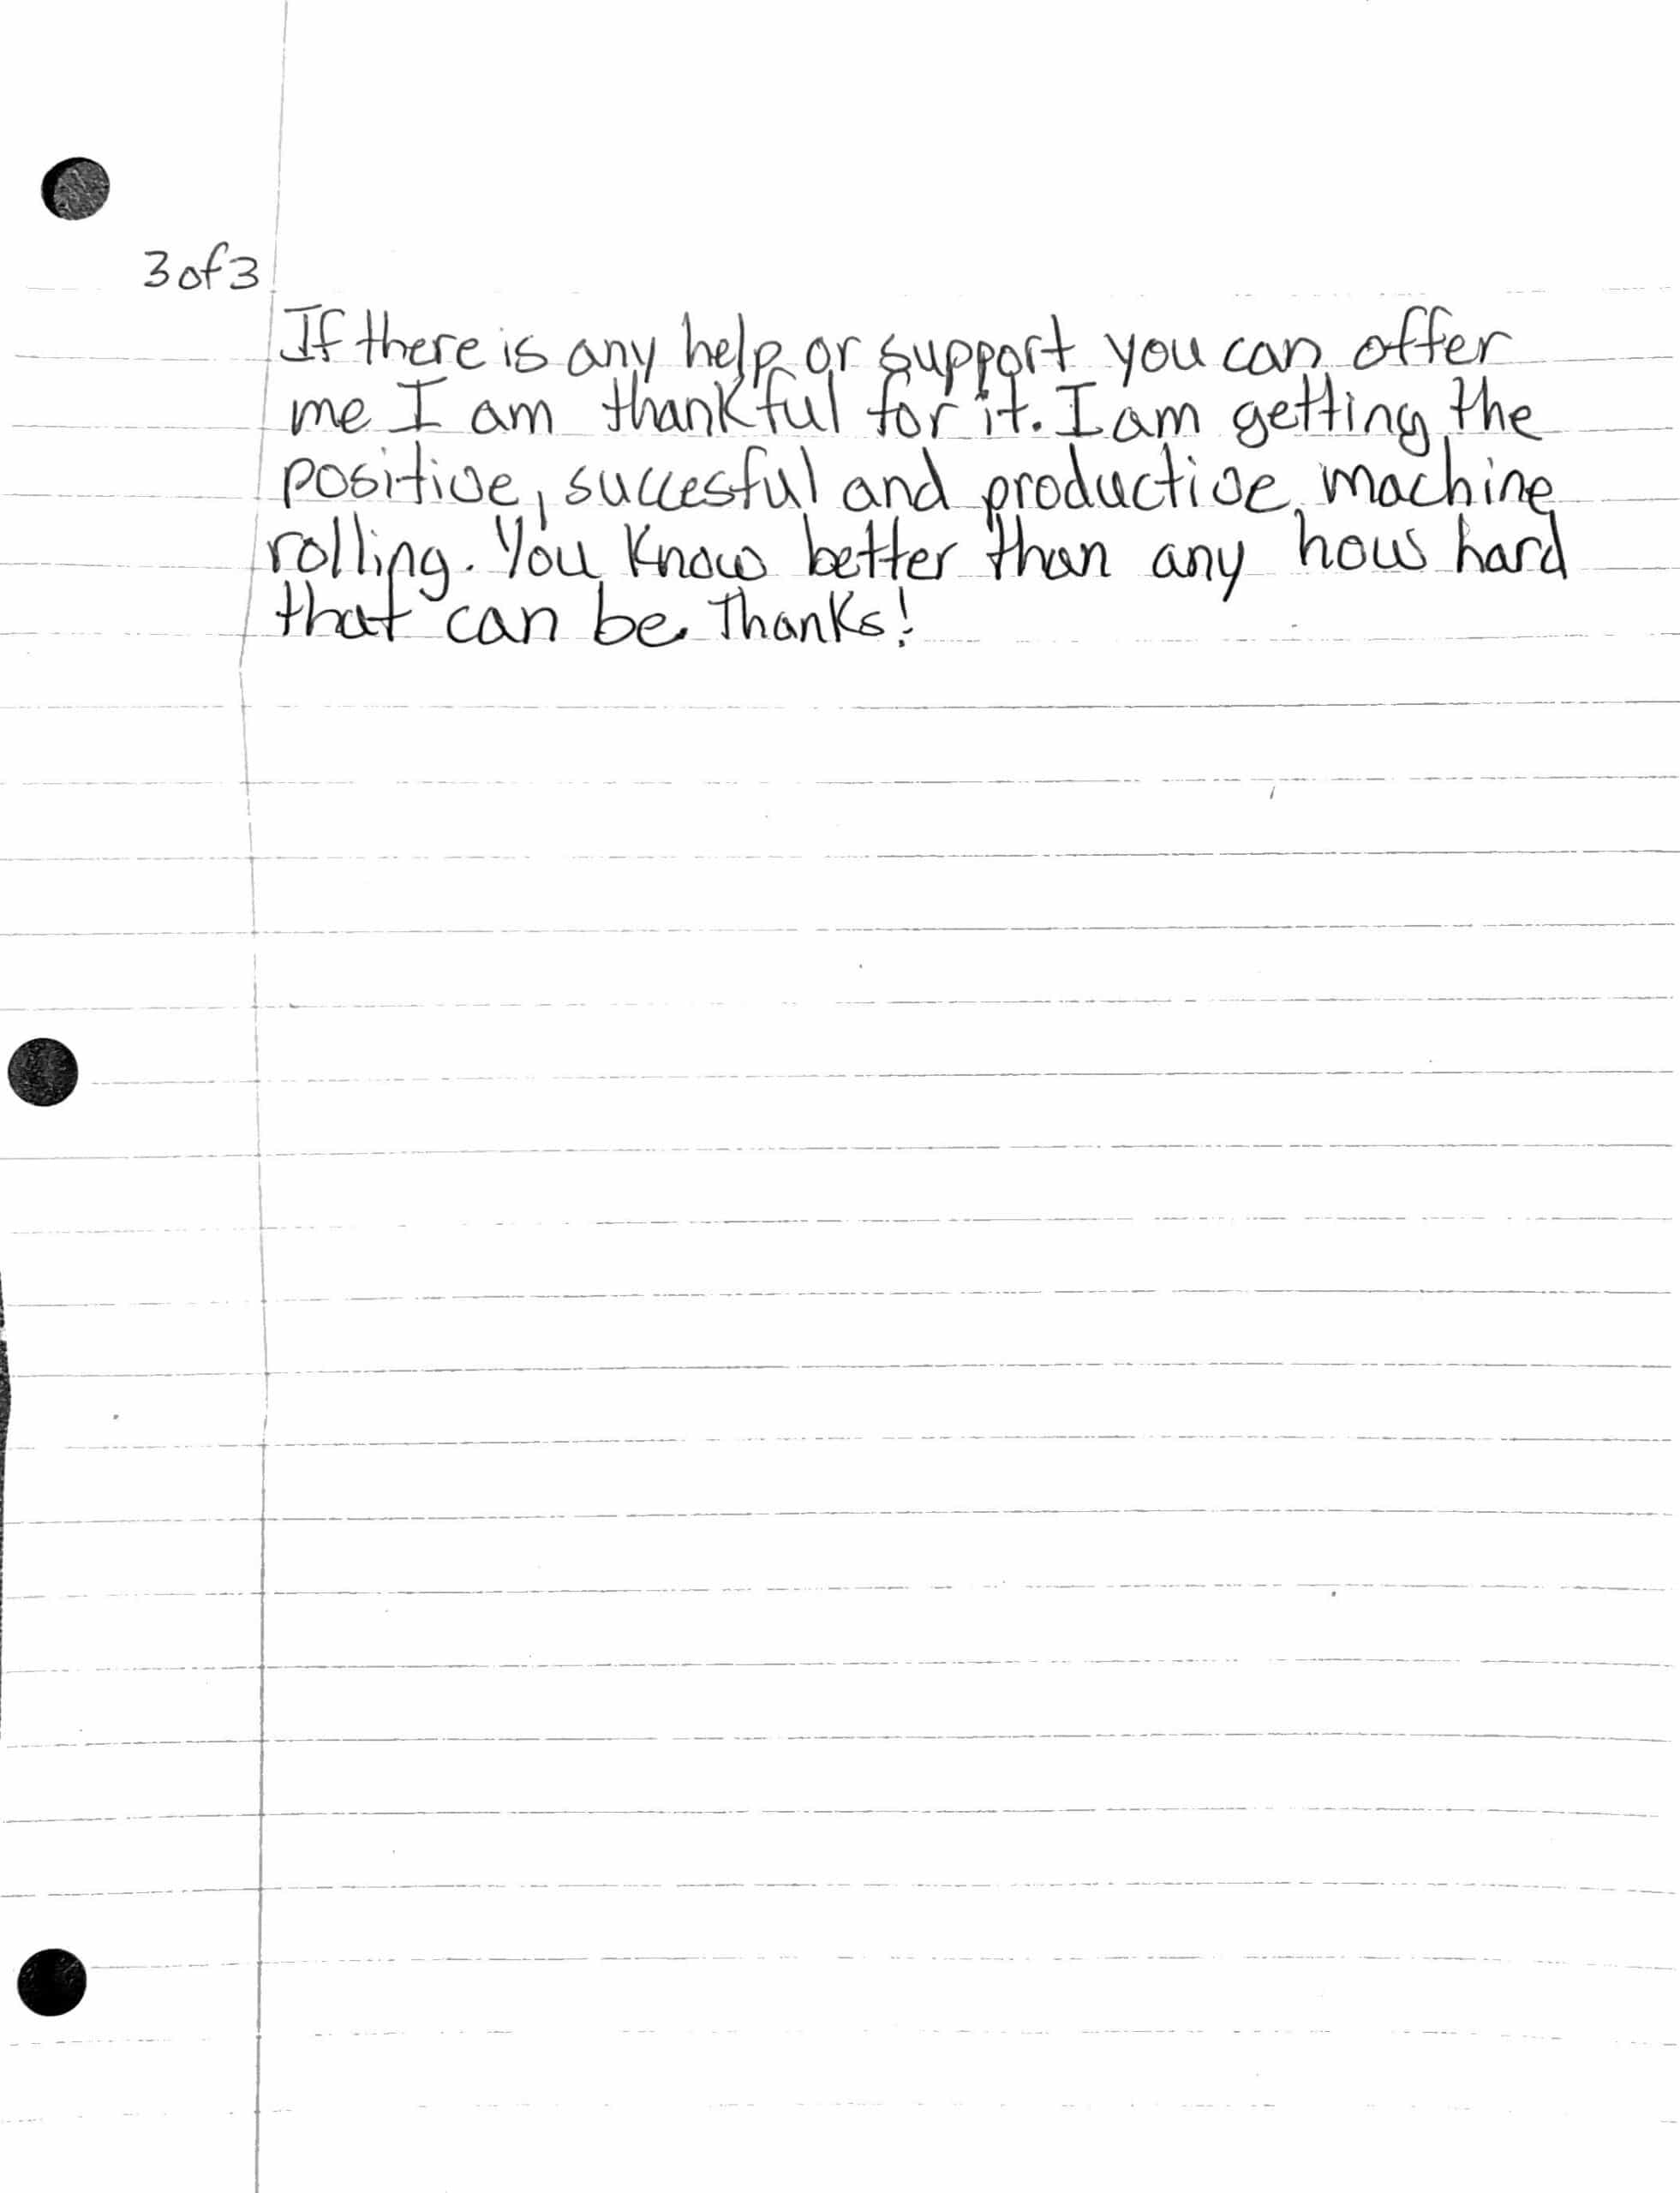 3 of 3
If there is any help or support you can offer
me I am thankful for it. I am getting the
positive, succesful and productive machine
rolling. You know better than any how hard
that can be. Thanks!